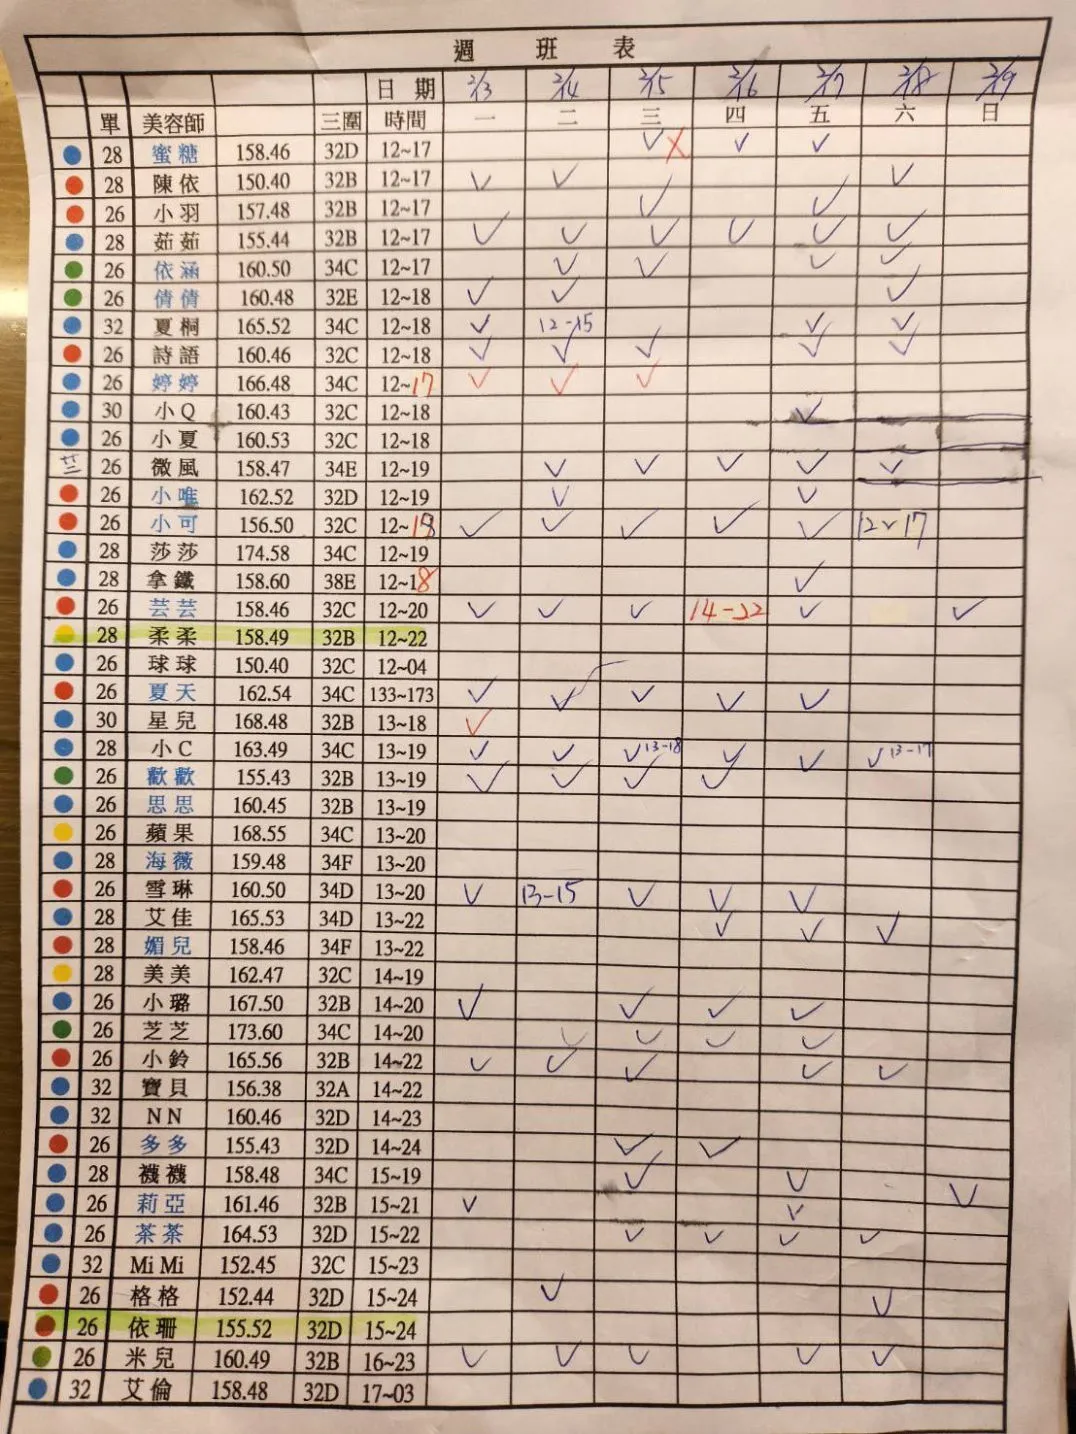 週 班 表
日 期 2/13 2/14 2/15 2/16 2/17 2/18 2/19
單 美容師 三圍 時間 一 二 三 四 五 六 日
28 蜜糖 158.46 32D 12~17 ✓ ✗ ✓ ✓
28 陳依 150.40 32B 12~17 ✓ ✓ ✓
26 小羽 157.48 32B 12~17 ✓ ✓
28 茹茹 155.44 32B 12~17 ✓ ✓ ✓ ✓ ✓ ✓
26 依涵 160.50 34C 12~17 ✓ ✓ ✓ ✓
26 倩倩 160.48 32E 12~18 ✓ ✓ ✓
32 夏桐 165.52 34C 12~18 ✓ 12-15 ✓ ✓
26 詩語 160.46 32C 12~18 ✓ ✓ ✓ ✓ ✓
26 婷婷 166.48 34C 12~17 ✓ ✓ ✓
30 小Q 160.43 32C 12~18 ✓
26 小夏 160.53 32C 12~18
26 微風 158.47 34E 12~19 ✓ ✓ ✓ ✓ ✓
26 小唯 162.52 32D 12~19 ✓ ✓
26 小可 156.50 32C 12~ ✓ ✓ ✓ ✓ ✓ 12~17
28 莎莎 174.58 34C 12~19
28 拿鐵 158.60 38E 12~18 ✓
26 芸芸 158.46 32C 12~20 ✓ ✓ ✓ 14-22 ✓ ✓
28 柔柔 158.49 32B 12~22
26 球球 150.40 32C 12~04
26 夏天 162.54 34C 133~173 ✓ ✓ ✓ ✓ ✓
30 星兒 168.48 32B 13~18 ✓
28 小C 163.49 34C 13~19 ✓ ✓ ✓ 13-18 ✓ ✓ ✓ 13-17
26 歡歡 155.43 32B 13~19 ✓ ✓ ✓ ✓
26 思思 160.45 32B 13~19
26 蘋果 168.55 34C 13~20
28 海薇 159.48 34F 13~20
26 雪琳 160.50 34D 13~20 ✓ 13-15 ✓ ✓ ✓
28 艾佳 165.53 34D 13~22 ✓ ✓ ✓
28 媚兒 158.46 34F 13~22
28 美美 162.47 32C 14~19
26 小璐 167.50 32B 14~20 ✓ ✓ ✓ ✓
26 芝芝 173.60 34C 14~20 ✓ ✓ ✓ ✓
26 小鈴 165.56 32B 14~22 ✓ ✓ ✓ ✓ ✓
32 寶貝 156.38 32A 14~22
32 NN 160.46 32D 14~23
26 多多 155.43 32D 14~24 ✓ ✓
28 襪襪 158.48 34C 15~19 ✓ ✓ ✓
26 莉亞 161.46 32B 15~21 ✓ ✓
26 茶茶 164.53 32D 15~22 ✓ ✓ ✓ ✓
32 Mi Mi 152.45 32C 15~23
26 格格 152.44 32D 15~24 ✓ ✓
26 依珊 155.52 32D 15~24
26 米兒 160.49 32B 16~23 ✓ ✓ ✓ ✓ ✓
32 艾倫 158.48 32D 17~03